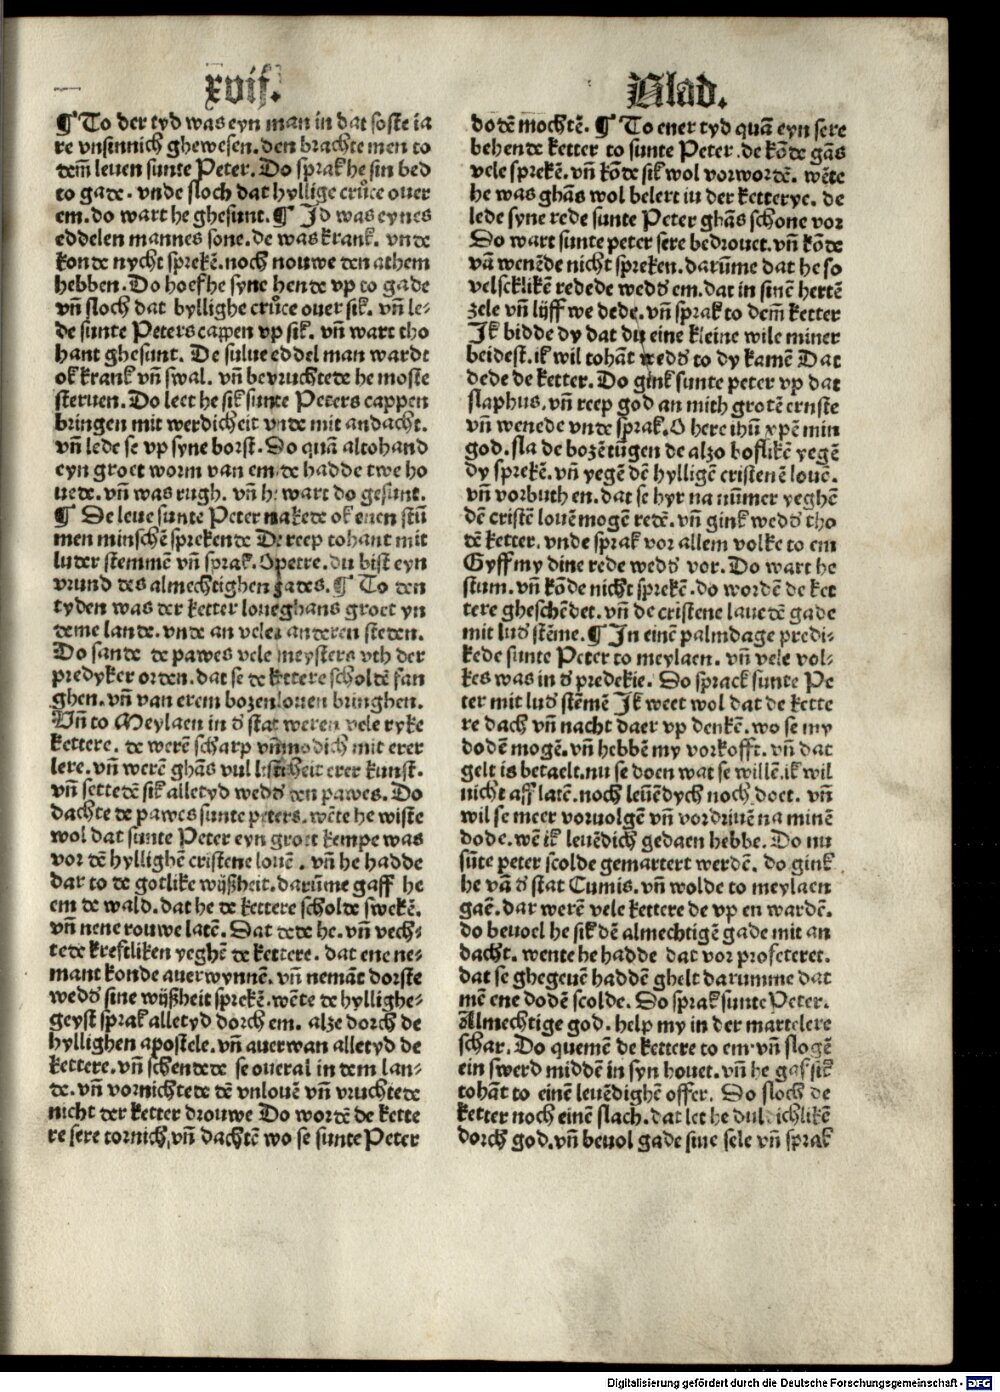 xvij.
Blad.
¶ To der tyd was eyn man in dat soste ia
re vnsinnich ghewesen. den brachte men to
dem̃ leuen sunte Peter. Do sprak he sin bed
to gade. vnde sloch dat hyllige crůce ouer
em. do wart he ghesunt. ¶ Id was eynes
eddelen mannes sone. de was krank. vnde
konde nycht sprekē. noch nouwe den athem
hebben. Do hoef he syne hende vp to gade
vñ sloch dat hyllighe crůce ouer sik. vñ le-
de sunte Peters cappen vp sik. vñ wart tho
hant ghesunt. De sulue eddel man wardt
ok krank vñ swal. vñ bevruchtede he moste
steruen. Do leet he sik sunte Peters cappen
bringen mit werdicheit vnde mit andacht.
vñ lede se vp syne borst. So quā altohand
eyn groet worm van em de hadde twe ho
uede. vñ was rugh. vñ he wart do gesunt.
¶ De leue sunte Peter makede ok enen stū
men minschē sprekende De reep tohant mit
luder stemmē vñ sprak. O petre. du bist eyn
vrund des almechtighen gades. ¶ To den
tyden was der ketter loue ghans groet yn
deme lande. vnde an velen anderen steden.
Do sande de pawes vele meysters vth der
predyker orden. dat se de kettere scholdē fan
ghen. vñ van erem bozen louen bringhen.
Vñ to Meylaen in d' stat weren vele ryke
kettere. de werē scharp vñ modich mit erer
lere. vñ werē ghās vul listicheit erer kunst.
vñ settedē sik alletyd wedd' den pawes. Do
dachte de pawes sunte peters. wēte he wiste
wol dat sunte Peter eyn groet kempe was
vor dē hyllighē cristene louē. vñ he hadde
dar to de gotlike wijßheit. darūme gaff he
em de wald. dat he de kettere scholde swekē.
vñ nene rouwe latē. Dat dede he. vñ vech-
tede kreftliken yeghē de kettere. dat ene ne-
mant konde auerwynnē. vñ nemāt dorste
wedd' sine wijßheit sprekē. wēte de hyllighe-
geyst sprak alletyd dorch em. alze dorch de
hyllighen apostele. vñ auerwan alletyd de
kettere. vñ schendede se oueral in dem lan-
de. vñ vornichtede dē vnlouē vñ vruchtede
nicht der ketter drouwe Do wordē de kette
re sere tornich, vñ dachtē wo se sunte Peter
dodē mochtē. ¶ To ener tyd quā eyn sere
behende ketter to sunte Peter. de kōde gās
vele sprekē. vñ kōde sik wol vorwordē. wēte
he was ghās wol belert in der ketterye. de
lede syne rede sunte Peter ghās schone vor
Do wart sunte peter sere bedrouet. vñ kōde
vā wenēde nicht spreken. darūme dat he so
velscklikēn redede wedd' em. dat in sinē hertē
zele vñ lijff we dede. vñ sprak to dem̃ ketter
Ik bidde dy dat du eine kleine wile miner
beidest. ik wil tohāt wedd' to dy kamē Dat
dede de ketter. Do gink sunte peter vp dat
slaphus. vñ reep god an mith grotē ernste
vñ wenede vnde sprak. O here ihū xpē min
god. sla de bozē tūgen de alzo boslikē yegē
dy sprekē. vñ yegē dē hylligē cristenē louē.
vñ vorbuth en. dat se hyr na nūmer yeghē
dē cristē louē mogē redē. vñ gink wedd' tho
dē ketter. vnde sprak vor allem volke to em
Gyff my dine rede wedd' vor. Do wart he
stum. vñ kōde nicht sprekē. do wordē de ket
tere gheschēdet. vñ de cristene lauedē gade
mit lud' stēme. ¶ In einē palmdage predi-
kede sunte Peter to meylaen. vñ vele vol-
kes was in d' predekie. Do sprack sunte Pe
ter mit lud' stēmē Ik weet wol dat de kette
re dach vñ nacht daer vp denkē. wo se my
dodē mogē. vñ hebbē my vorkofft. vñ dat
gelt is betaelt. nu se doen wat se willē. ik wil
nicht aff latē. noch leuēdych noch doet. vñ
wil se meer voruolgē vñ vordriuē na minē
dode. wē ik leuēdich gedaen hebbe. Do nu
sūte peter scolde gemartert werdē. do gink
he vā d' stat Cumis. vñ wolde to meylaen
gaē. dar werē vele kettere de vp en wardē.
do beuoel he sik dē almechtigē gade mit an
dacht. wente he hadde dat vor profeteret.
dat se ghegeuē haddē ghelt darumme dat
mē ene dodē scolde. Do sprak sunte Peter.
Almechtige god. help my in der martelere
schar. Do quemē de kettere to em vñ slogē
ein swerd middē in syn houet. vñ he gaf sik
tohāt to einē leuēdighē offer. Do sloch de
ketter noch einē slach. dat let he duldichlikē
dorch god. vñ beuol gade sine sele vñ sprak
Digitalisierung gefördert durch die Deutsche Forschungsgemeinschaft - DFG